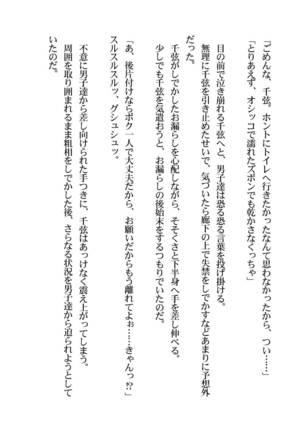 「ごめんな、千弦。ホントにトイレへ行きたかったなんて思わなかったから、つい……」
「とりあえず、オシッコで濡れたズボンでも乾かさなくっちゃ」
目の前で泣き崩れる千弦へと、男子達は恐る恐る言葉を投げ掛ける。
無理に千弦を引き止めたせいで、気づいたら廊下の上で失禁をしでかすなどあまりに予想外
だった。
千弦がしでかしたお漏らしを心配しながら、そそくさと下半身へ手を差し伸べる。
少しでも千弦を気遣おうと、お漏らしの後始末をするつもりでいたのだ。
「あ、後片付けならボク一人で大丈夫だから、お願いだからもう離れてよぉ……きゃんっ!?」
スルスルスルッ、グシュシュッ。
不意に男子達から差し向けられた手つきに、千弦はあっけなく震え上がってしまう。
周囲を取り囲まれるまま粗相をしでかした後、さらなる状況を男子達から迫られようとして
いたのだ。